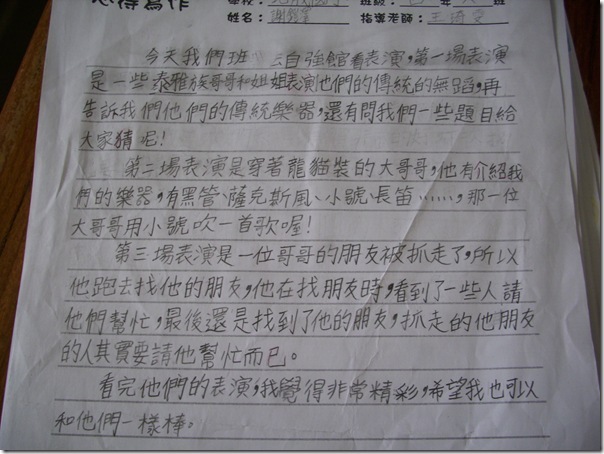 心得寫作
姓名：謝 指導老師：王琦雯
今天我們班去自強館看表演，第一場表演
是一些泰雅族哥哥和姐姐表演他們的傳統的無蹈，再
告訴我們他們的傳統樂器，還有問我們一些題目給
大家猜呢！
第二場表演是穿著龍貓裝的大哥哥，他有介紹我
們的樂器，有黑管、薩克斯風、小號、長笛……，那一位
大哥哥用小號吹一首歌喔！
第三場表演是一位哥哥的朋友被抓走了，所以
他跑去找他的朋友，他在找朋友時，看到了一些人請
他們幫忙，最後還是找到了他的朋友，抓走的他朋友
的人其實要請他幫忙而已。
看完他們的表演，我覺得非常精彩，希望我也可以
和他們一樣棒。